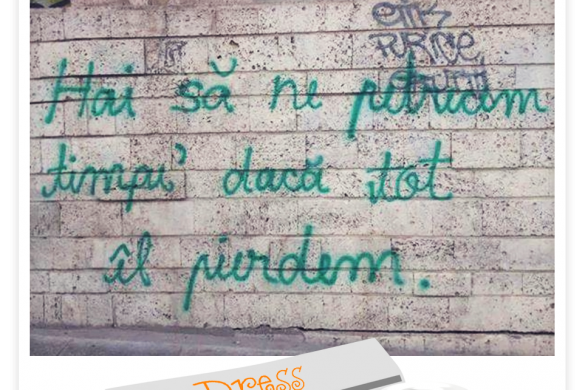 PURICE
Hai să ne petrecem
timpu' dacă tot
îl pierdem.
Dress